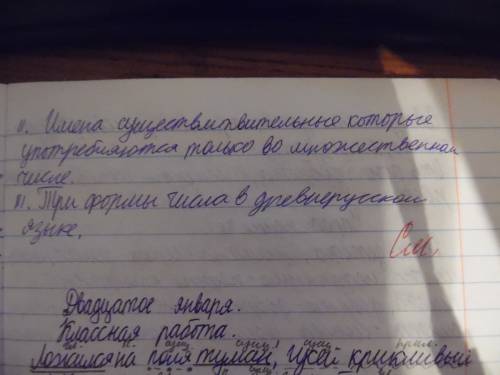 II. Имена существительные которые
употребляются только во множественном
числе.
III. Три формы числа в древнерусском
языке.
См.
Двадцатое января.
Классная работа.
сущ. сущ. прил.
Ложился на поля туман, Гусей крикливый